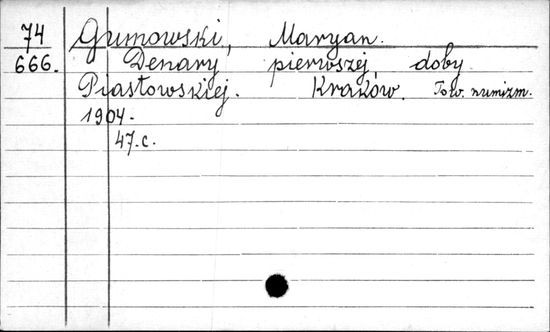 74 Gumowski, Maryan.
666. Denary pierwszej doby
Piastowskiej. Kraków. Tow. numizm.
1904.
47.c.